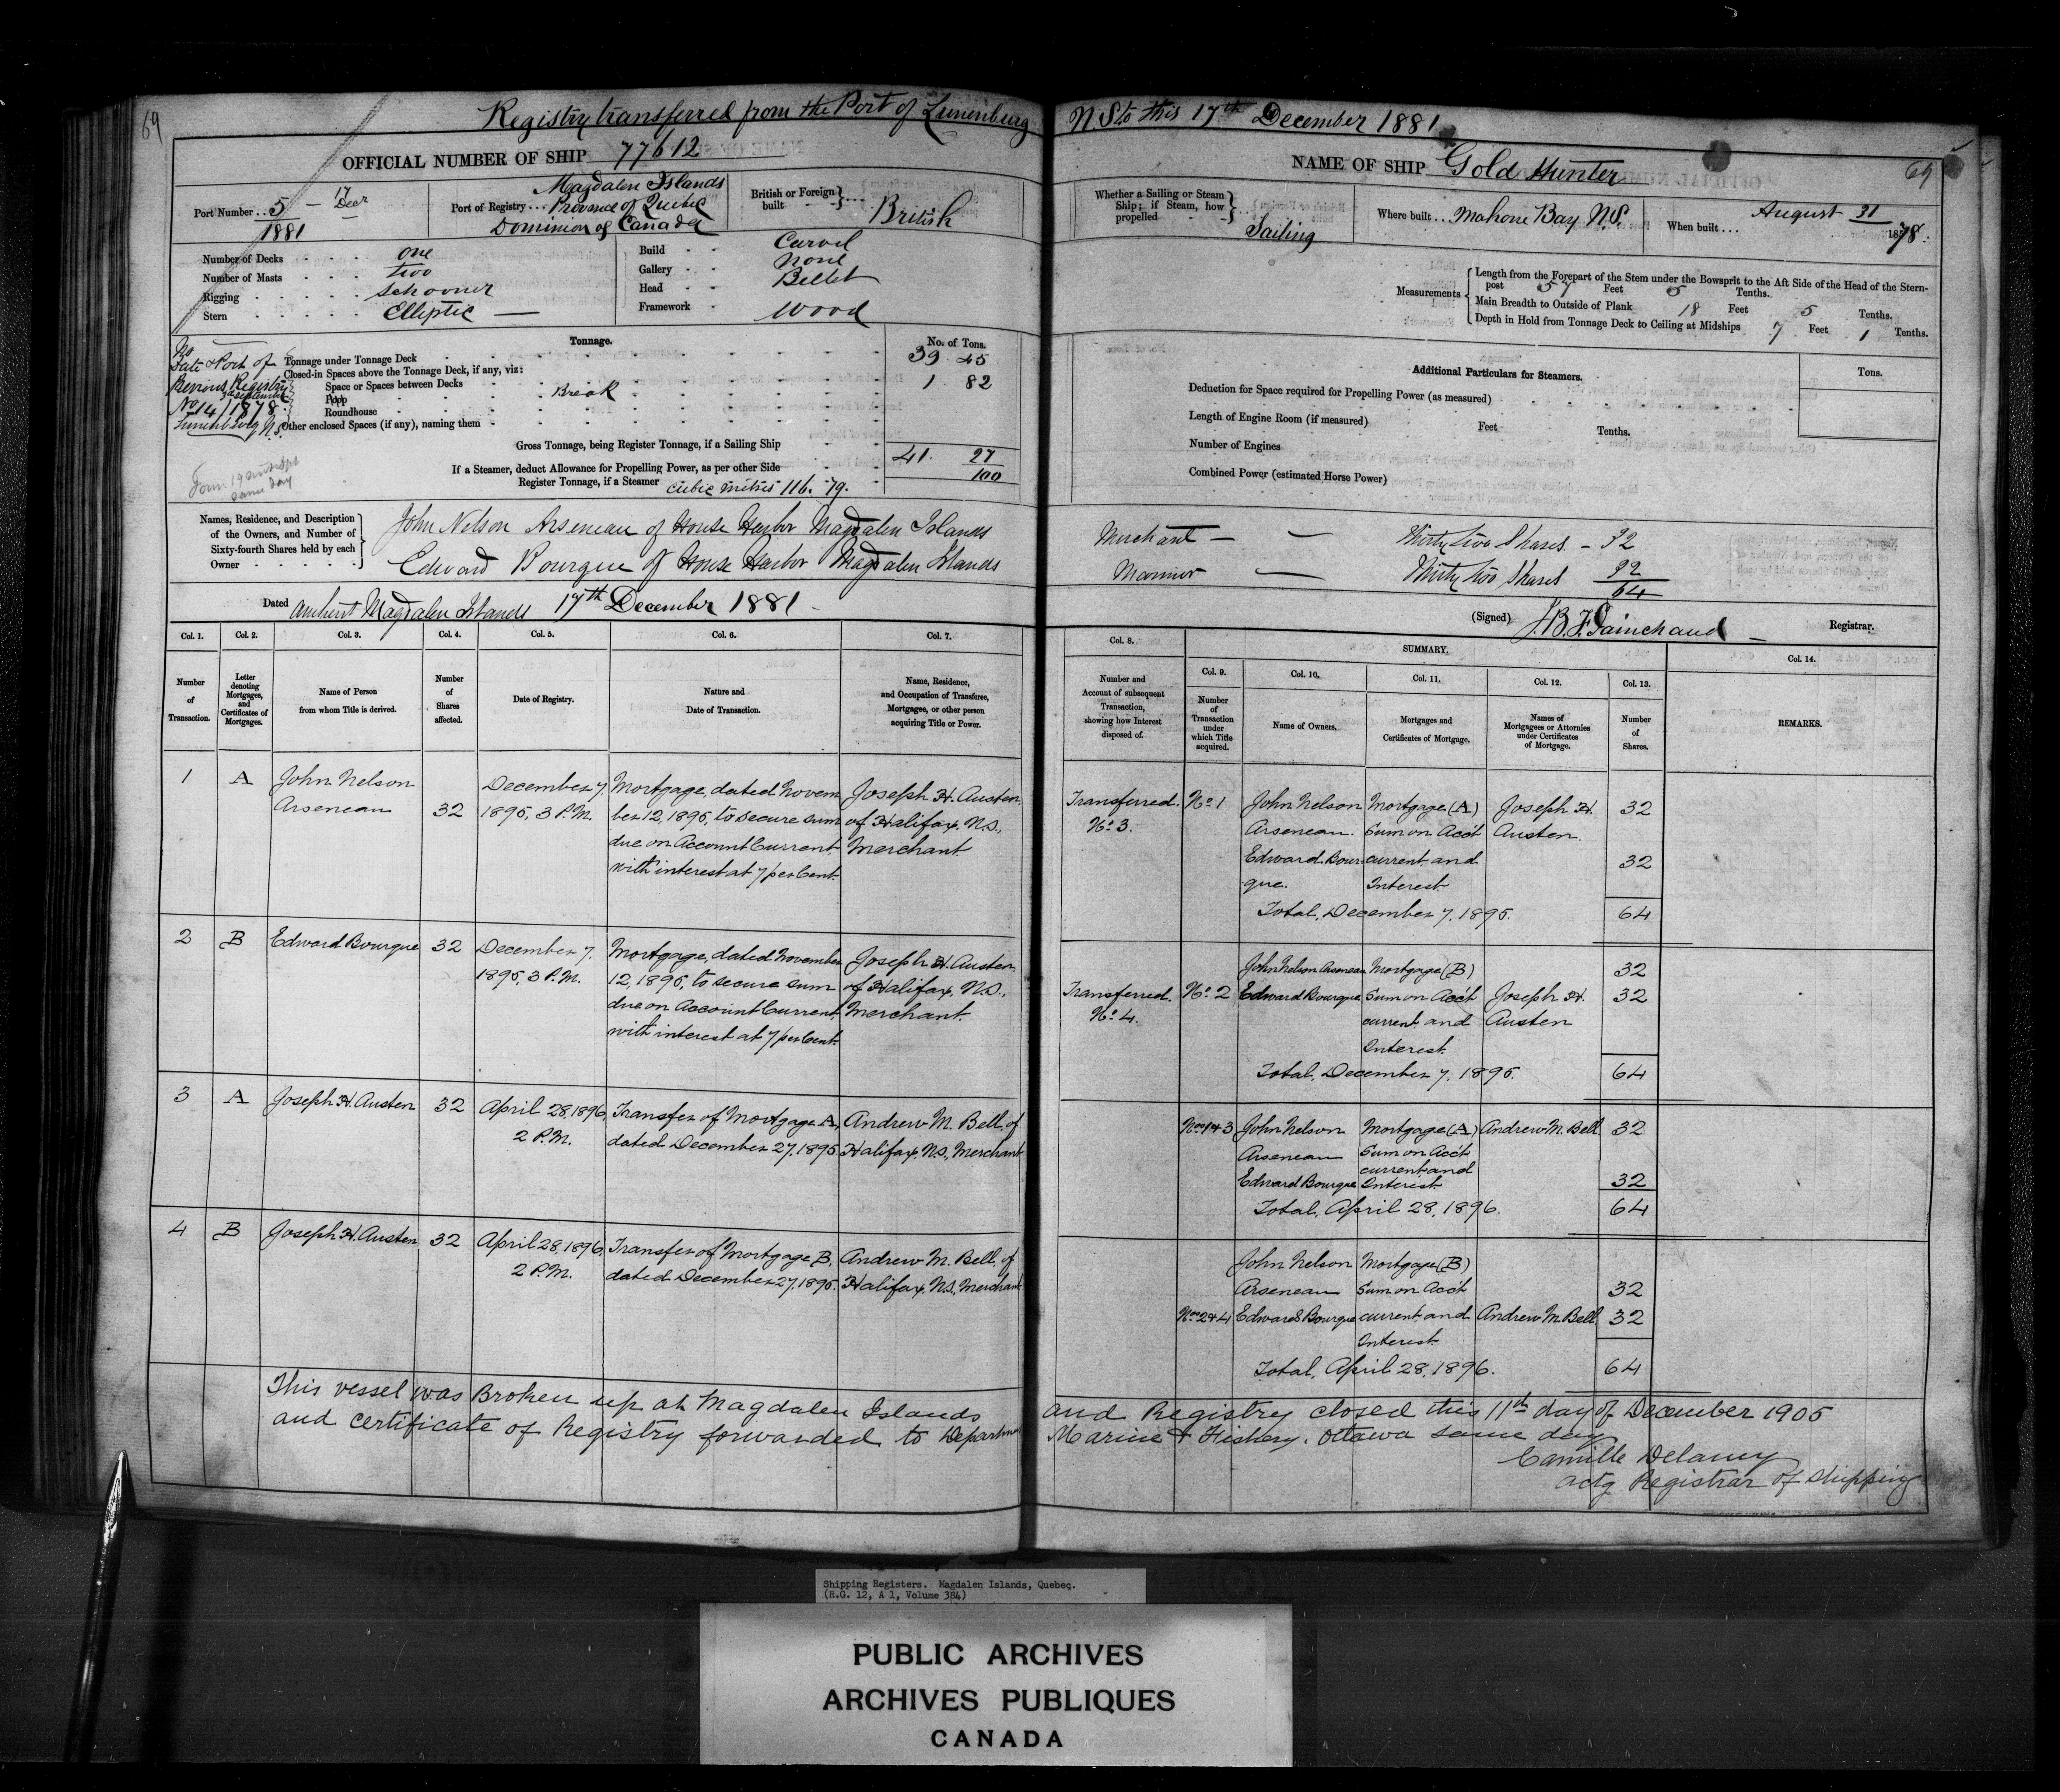 69
Registry transferred from the Port of Lunenburg N.S. to this 17th December 1881
OFFICIAL NUMBER OF SHIP 77612
NAME OF SHIP Gold Hunter
69
Port Number .. 5 — 17 Decr
1881
Port of Registry ... Magdalen Islands
Province of Quebec
Dominion of Canada
British or Foreign built } .... British
Whether a Sailing or Steam Ship; if Steam, how propelled } Sailing
Where built ... Mahone Bay N.S.
When built ... August 31 1878.
Number of Decks . . . . one
Number of Masts . . . . two
Rigging . . . . . schooner
Stern . . . . . Elliptic —
Build - - Carvel
Gallery - - None
Head - - Billet
Framework - Wood
Measurements
Length from the Forepart of the Stem under the Bowsprit to the Aft Side of the Head of the Stern-
post 57 Feet 5 Tenths.
Main Breadth to Outside of Plank 18 Feet 5 Tenths.
Depth in Hold from Tonnage Deck to Ceiling at Midships 7 Feet 1 Tenths.
No
Date & Port of
Previous Registry
September
No 14/1878
Lunenburg N.S.
Tonnage.
No. of Tons.
Tonnage under Tonnage Deck 39 45
Closed-in Spaces above the Tonnage Deck, if any, viz:
Space or Spaces between Decks 1 82
Poop Break
Roundhouse
Other enclosed Spaces (if any), naming them
Gross Tonnage, being Register Tonnage, if a Sailing Ship
41. 27
100
If a Steamer, deduct Allowance for Propelling Power, as per other Side
Register Tonnage, if a Steamer cubic metres 116. 79.
Form 19
same day
Additional Particulars for Steamers.
Tons.
Deduction for Space required for Propelling Power (as measured)
Length of Engine Room (if measured) Feet Tenths.
Number of Engines
Combined Power (estimated Horse Power)
Names, Residence, and Description
of the Owners, and Number of
Sixty-fourth Shares held by each
Owner
John Nelson Arseneau of House Harbor Magdalen Islands Merchant — — Thirty two Shares — 32
Edward Bourque of House Harbor Magdalen Islands Mariner — Thirty two Shares 32
64
Dated Amherst Magdalen Islands 17th December 1881 -
(Signed) J.B.F. Painchaud — Registrar.
Col. 1. Col. 2. Col. 3. Col. 4. Col. 5. Col. 6. Col. 7.
Number of Transaction.
Letter denoting Mortgages, and Certificates of Mortgages.
Name of Person from whom Title is derived.
Number of Shares affected.
Date of Registry.
Nature and Date of Transaction.
Name, Residence, and Occupation of Transferee, Mortgagee, or other person acquiring Title or Power.
Col. 8.
SUMMARY.
Col. 9. Col. 10. Col. 11. Col. 12. Col. 13. Col. 14.
Number and Account of subsequent Transaction, showing how Interest disposed of.
Number of Transaction under which Title acquired.
Name of Owners.
Mortgages and Certificates of Mortgage.
Names of Mortgagees or Attornies under Certificates of Mortgage.
Number of Shares.
REMARKS.
1 A John Nelson Arseneau 32
December 7, 1895, 3 P.M.
Mortgage, dated Novem
ber 12, 1895, to secure sum
due on Account Current,
with interest at 7 per Cent.
Joseph H. Austen,
of Halifax, N.S.,
Merchant.
Transferred. No. 3.
No. 1
John Nelson Arseneau. 32
Edward Bourque. 32
Mortgage (A)
Sum on Acc't
current and
Interest
Joseph H. Austen
Total, December 7, 1895. 64
2 B Edward Bourque 32
December 7, 1895, 3 P.M.
Mortgage, dated November
12, 1895, to secure sum
due on Account Current,
with interest at 7 per Cent.
Joseph H. Austen,
of Halifax, N.S.,
Merchant.
Transferred. No. 4.
No. 2
John Nelson Arseneau 32
Edward Bourque 32
Mortgage (B)
Sum on Acc't
current and
Interest
Joseph H. Austen
Total, December 7, 1895. 64
3 A Joseph H. Austen 32
April 28, 1896, 2 P.M.
Transfer of Mortgage A,
dated December 27, 1895
Andrew M. Bell, of
Halifax, N.S., Merchant
Nos 1 & 3
John Nelson Arseneau 32
Edward Bourque 32
Mortgage (A)
Sum on Acc't
current and
Interest
Andrew M. Bell
Total, April 28, 1896. 64
4 B Joseph H. Austen 32
April 28, 1896, 2 P.M.
Transfer of Mortgage B,
dated December 27, 1895.
Andrew M. Bell, of
Halifax, N.S., Merchant
Nos 2 & 4
John Nelson Arseneau 32
Edward Bourque 32
Mortgage (B)
Sum on Acc't
current and
Interest
Andrew M. Bell
Total, April 28, 1896. 64
This vessel was Broken up at Magdalen Islands and Registry closed this 11th day of December 1905
and certificate of Registry forwarded to Departmen Marine & Fishery. Ottawa same day
Camille Delaney
actg Registrar of Shipping
Shipping Registers. Magdalen Islands, Quebec.
(R.G. 12, A 1, Volume 384)
PUBLIC ARCHIVES
ARCHIVES PUBLIQUES
CANADA